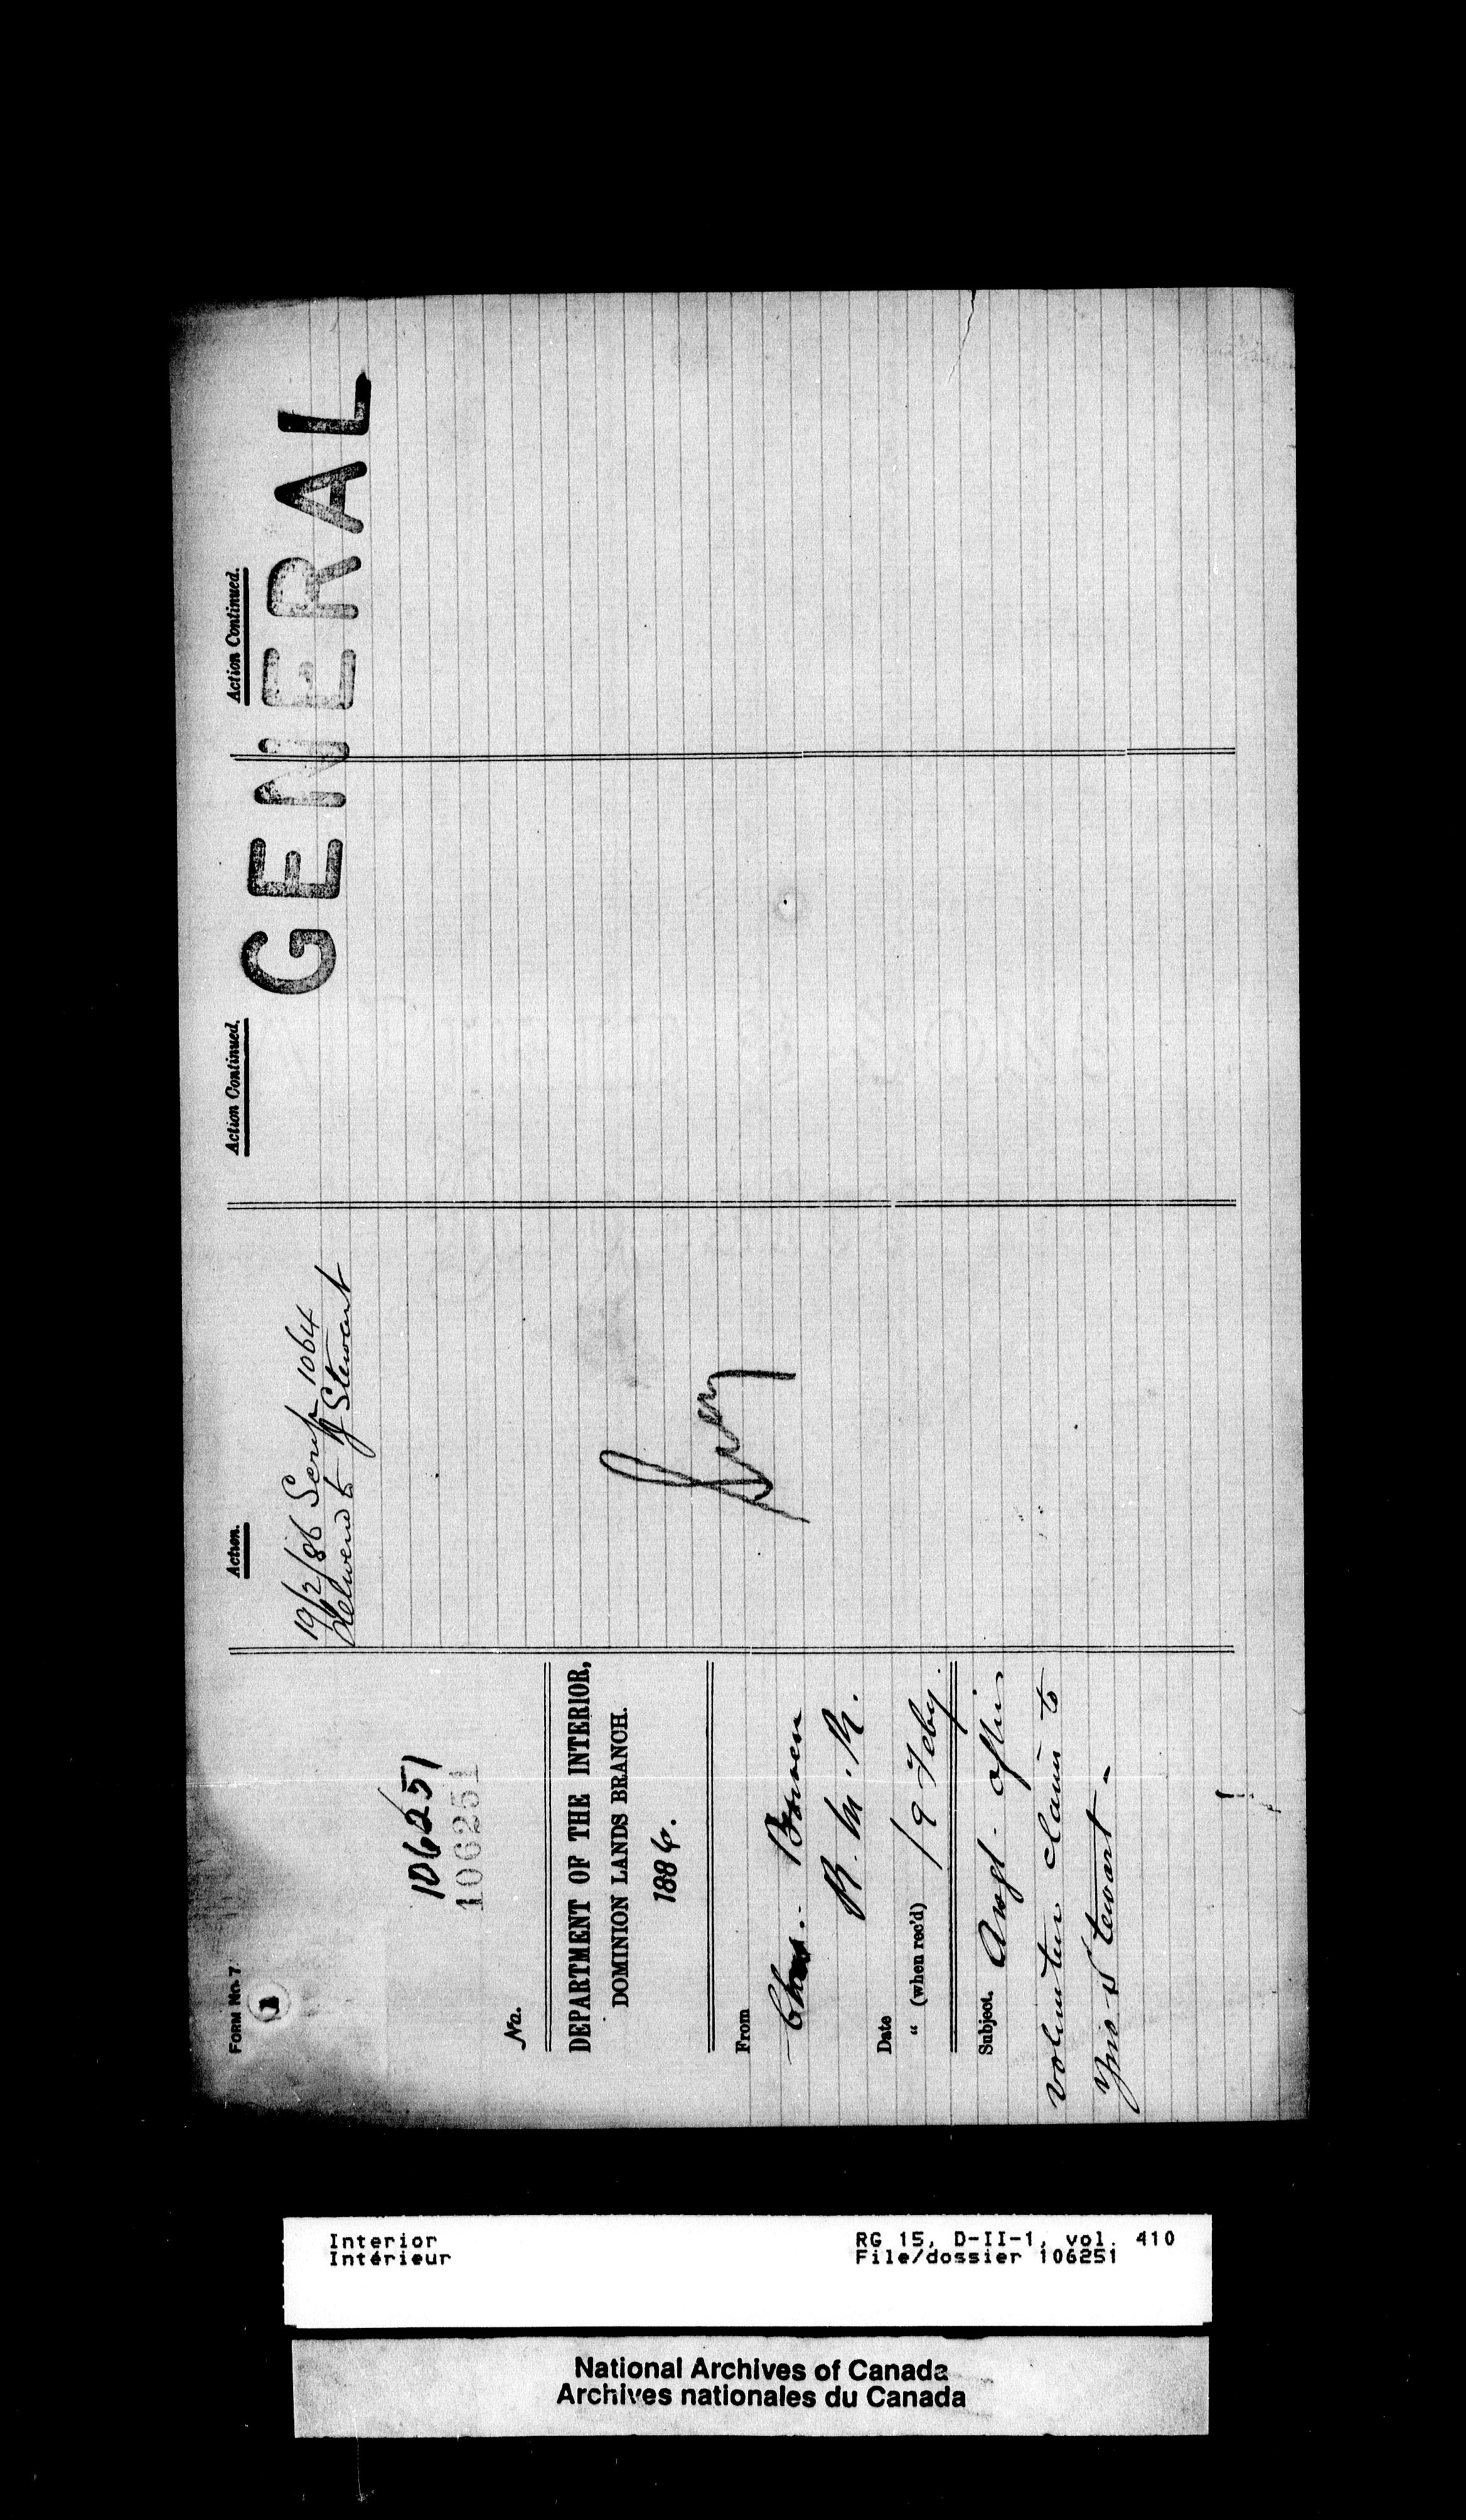 FORM No. 7
106251
106251
No.
DEPARTMENT OF THE INTERIOR,
DOMINION LANDS BRANCH.
1886.
From
Chas. Bowen
R. M. R.
Date
" (when rec'd) 19 Feby.
Subject. Assgt. of his
volunteer claim to
Jno Stewart -
Action.
19/2/86 Scrip 1064
Delivered to J Stewart
Action Continued.
Action Continued.
GENERAL
Interior
Intérieur
RG 15, D-II-1, vol. 410
File/dossier 106251
National Archives of Canada
Archives nationales du Canada